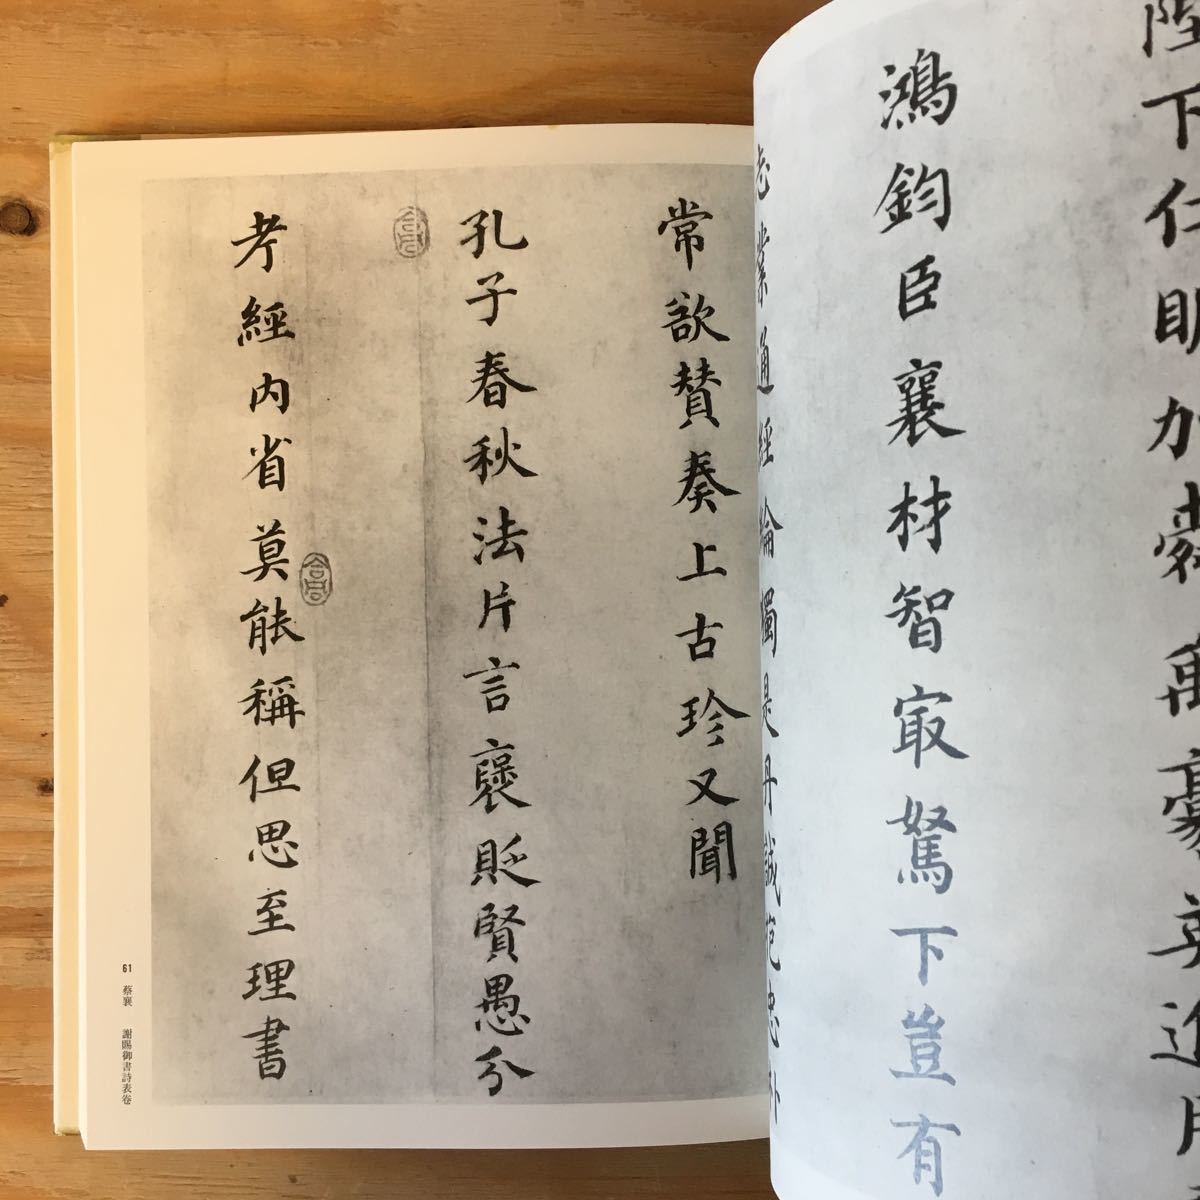 陛下仁明加舜萬豪英進用
鴻鈞臣襄材智冣駑下豈有
志業通經綸獨是丹誠抱忠朴
常欲賛奏上古珍又聞
孔子春秋法片言襃貶賢愚分
考經内省莫能稱但思至理書
61 蔡襄 謝賜御書詩表卷